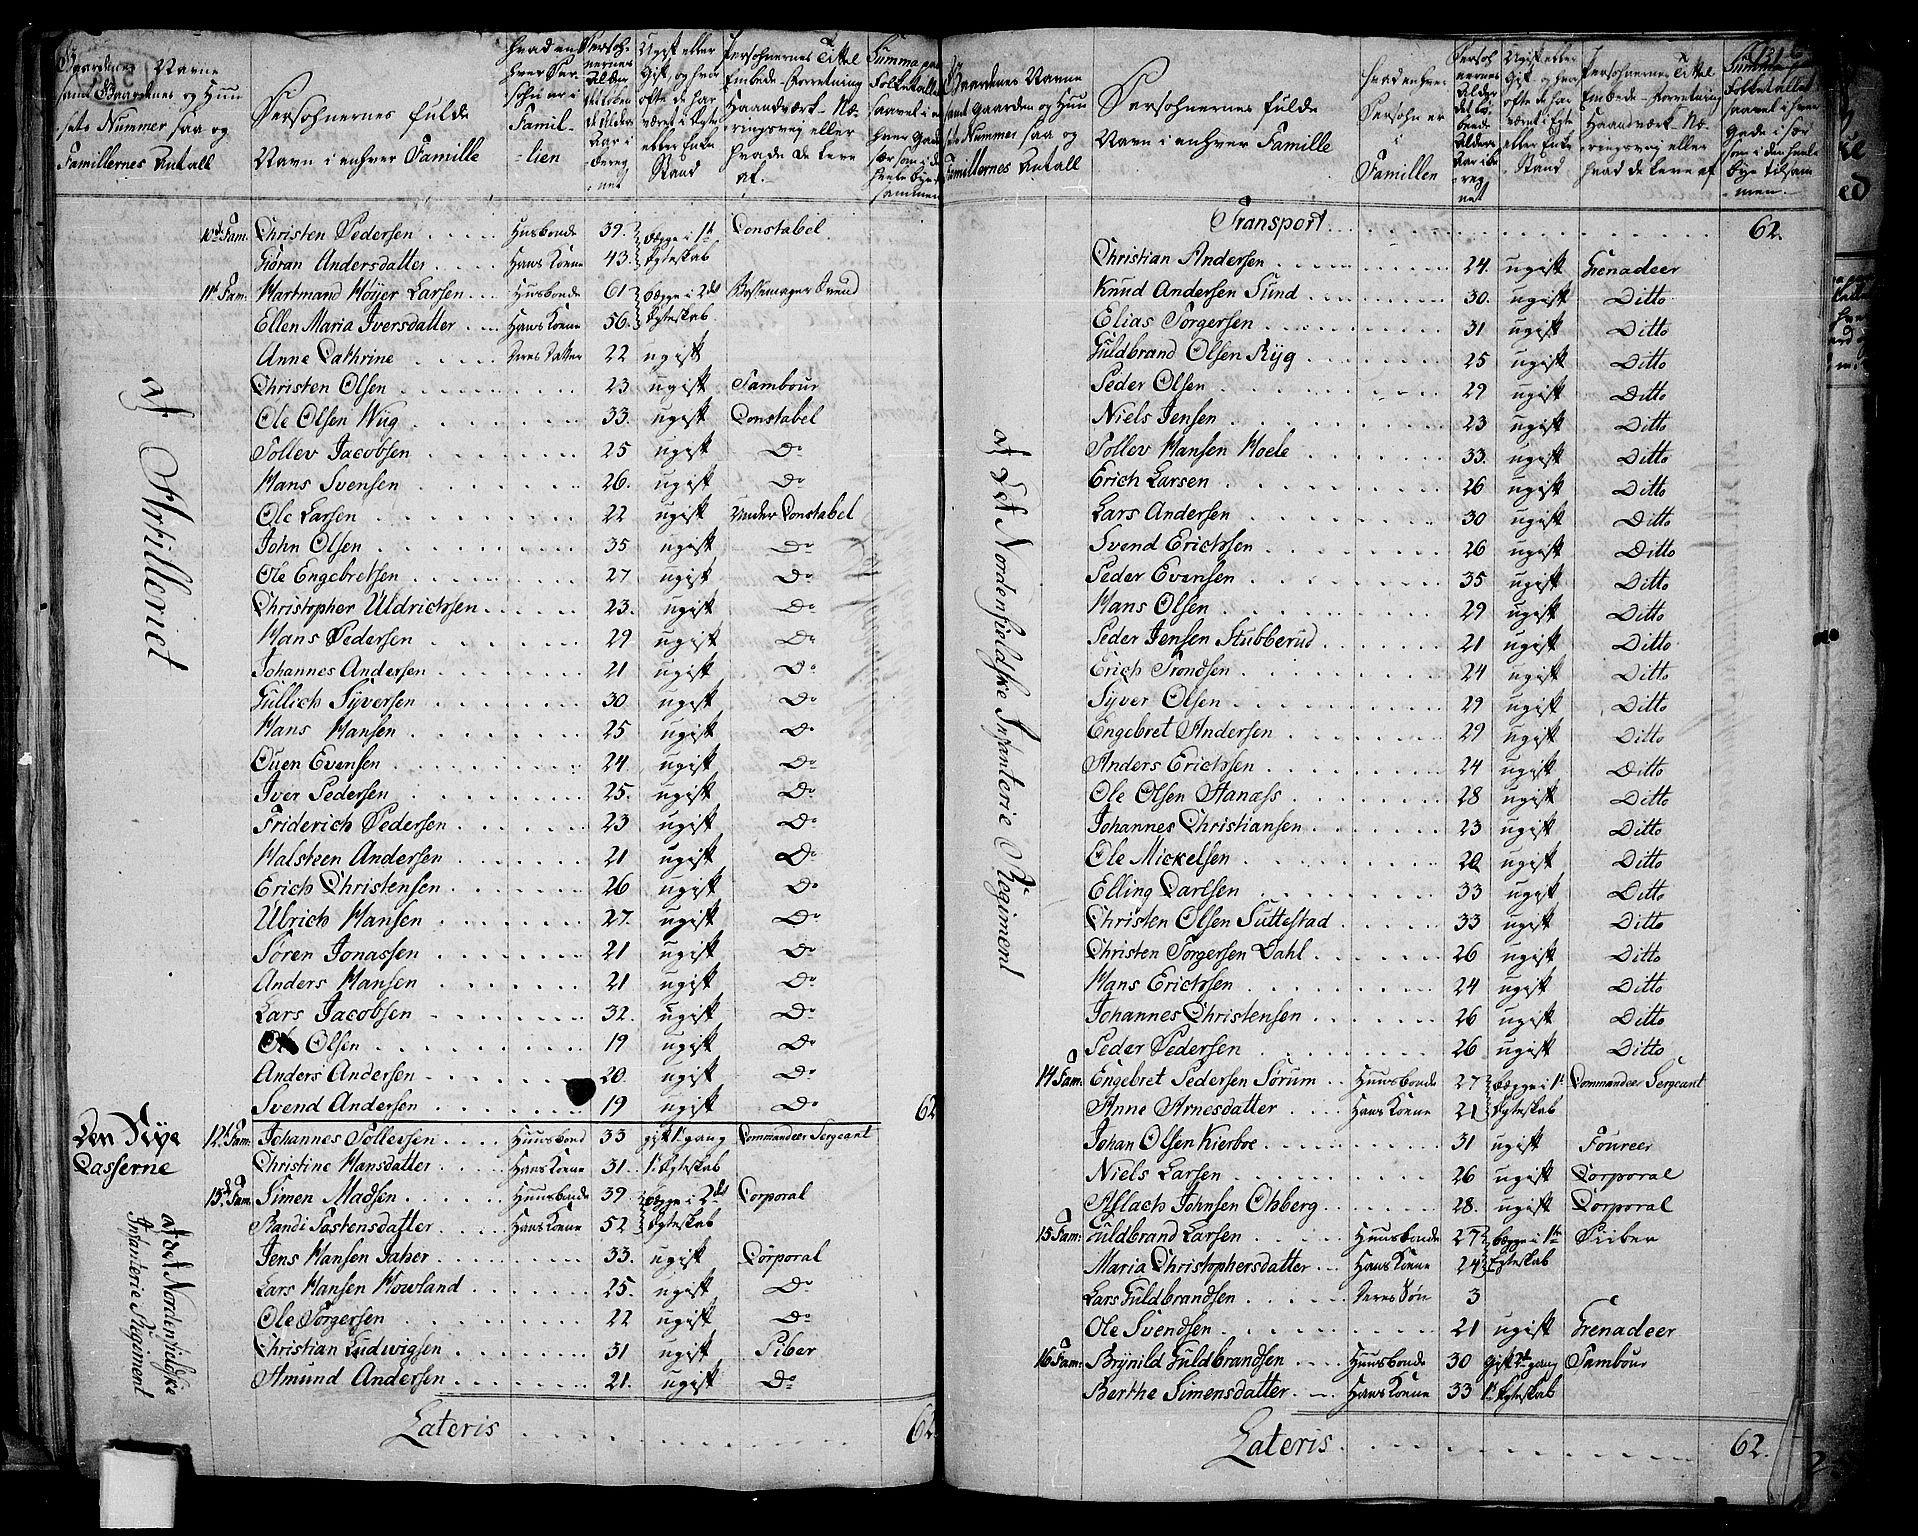 Gaardenes Navne
samt Gaardenes og Huu
sets Nummer saa og
Famillernes Antall
Persohnernes fulde
Navn i enhver Famille
hvad en
hver Per
sohn er i
Famil-
lien
Persoh-
nernes
Alder
Ugift eller
Gift, og hvor
ofte de har
været i Egte
eller Enke
Stand
Persohnernes Tittel
Embede-Forretning
Haandværk-Næ-
ringsveg eller
hvade De leve
af.
10de Fam: Christen Pedersen Husbonde 39. begge i 1te Constabel
Giøran Andersdatter Hans Kone 43. Egteskab
11te Fam: Hartmand Høyer Larsen Husbonde 61 begge i 2det Bøssemager Svend
Ellen Maria Iversdatter Hans Kone 56. Egteskab
Anne Cathrine Deres Datter 22 ugift
Christen Olsen 23 ugift Tambour
Ole Olsen Wiig 33. ugift Constabel
Tollev Jacobsen 25 ugift Do
Hans Svensen 26. ugift Do
Ole Larsen 22 ugift Under Constabel
John Olsen 35 ugift Do
Ole Engebretsen 27 ugift Do
Christopher Uldrichsen 23. ugift Do
Hans Pedersen 29 ugift Do
Johannes Andersen 21 ugift Do
Gullich Syversen 30 ugift Do
Hans Hansen 25 ugift Do
Ouen Evensen 24 ugift Do
Iver Pedersen 25. ugift Do
Friderich Pedersen 23 ugift Do
Halsteen Andersen 21 ugift Do
Erich Christensen 26 ugift Do
Ulrich Hansen 27. ugift Do
Søren Jonassen 21 ugift Do
Anders Hansen 21 ugift Do
Lars Jacobsen 32. ugift Do
Olsen 19 ugift Do
Anders Andersen 20. ugift Do
Svend Andersen 19 ugift Do 62
af Artilleriet
Den Nye
Casserne
12te Fam: Johannes Tollersen Huusbond 33 gift 1te gang Commandeer Sergeant
Christine Hansdatter Hans Kone 31. 1te Egteskab
13de Fam: Simen Madsen Huusbonde 39. begge i 2det Corporal
Randi Tostensdatter Hans Kone 52 Egteskab
Jens Hansen Faher 33. ugift Corporal
Lars Hansen Howland 25. ugift Do
Ole Torgersen 22 ugift Do
Christian Ludwigsen 31 ugift Piber
Amund Andersen 21. ugift Do
af det Nordenfieldske
Infanterie Regiment
Lateris 62.
Gaardenes Navne
samt Gaarden og Huu
sets Nummer saa og
Famillernes Antall
Persohnernes fulde
Navn i enhver Famille
hvad enhver
Persohn er
i
Famillen
Ugift eller
Gift og hvor
ofte de har
været i Egte
eller Enke
Stand
Persohnernes Tittel
Embede-Forretning
Haandværk-Næ-
ringsveg eller
hvad de leve af
Summa paa
Folketallet
saavel i hver
Gade i sær
som i den heele
bye tilsam
men.
Transport 62.
Christian Andersen 24. ugift Grenadeer
Knud Andersen Sund 30. ugift Ditto
Elias Torgersen 31 ugift Ditto
Guldbrand Olsen Ryg 25 ugift Ditto
Peder Olsen 29 ugift Ditto
Niels Jensen 23 ugift Ditto
Tollev Hansen Moele 33. ugift Ditto
Erich Larsen 26 ugift Ditto
Lars Andersen 30 ugift Ditto
Svend Erichsen 26 ugift Ditto
Peder Evensen 35 ugift Ditto
Hans Olsen 29 ugift Ditto
Peder Jensen Stubberud 21 ugift Ditto
Erich Trondsen 24 ugift Ditto
Syver Olsen 29 ugift Ditto
Engebret Andersen 29 ugift Ditto
Anders Erichsen 24 ugift Ditto
Ole Olsen Stanæss 28 ugift Ditto
Johannes Christiansen 23 ugift Ditto
Ole Mickelsen 20 ugift Ditto
Elling Carlsen 33 ugift Ditto
Christen Olsen Suttestad 33 ugift Ditto
Christen Torgersen Dahl 26 ugift Ditto
Hans Erichsen 24 ugift Ditto
Johannes Christensen 26 ugift Ditto
Peder Pedersen 26 ugift Ditto
14 Fam: Engebret Pedersen Sørum Huusbonde 27 begge i 1te Commandeer Sergeant
Anne Arnesdatter Hans Kone 21 Egteskab
Johan Olsen Kierboe 31 ugift Foureer
Niels Larsen 26 ugift Corporal
Aslach Johnsen Ohberg 28. ugift Corporal
15 Fam: Guldbrand Larsen Huusbonde 27 begge i 1te Piiber
Maria Christophersdatter Hans Kone 24 Egteskab
Lars Guldbrandsen Deres Søn 3
Ole Svendsen 21 ugift Grenadeer
16 Fam: Brynild Guldbrandsen Huusbonde 30 Gift 2de gang Tambour
Berthe Simensdatter Hans Kone 33 1te Egteskab
af Det Nordenfieldske Infanterie Regiment
Lateris 62.